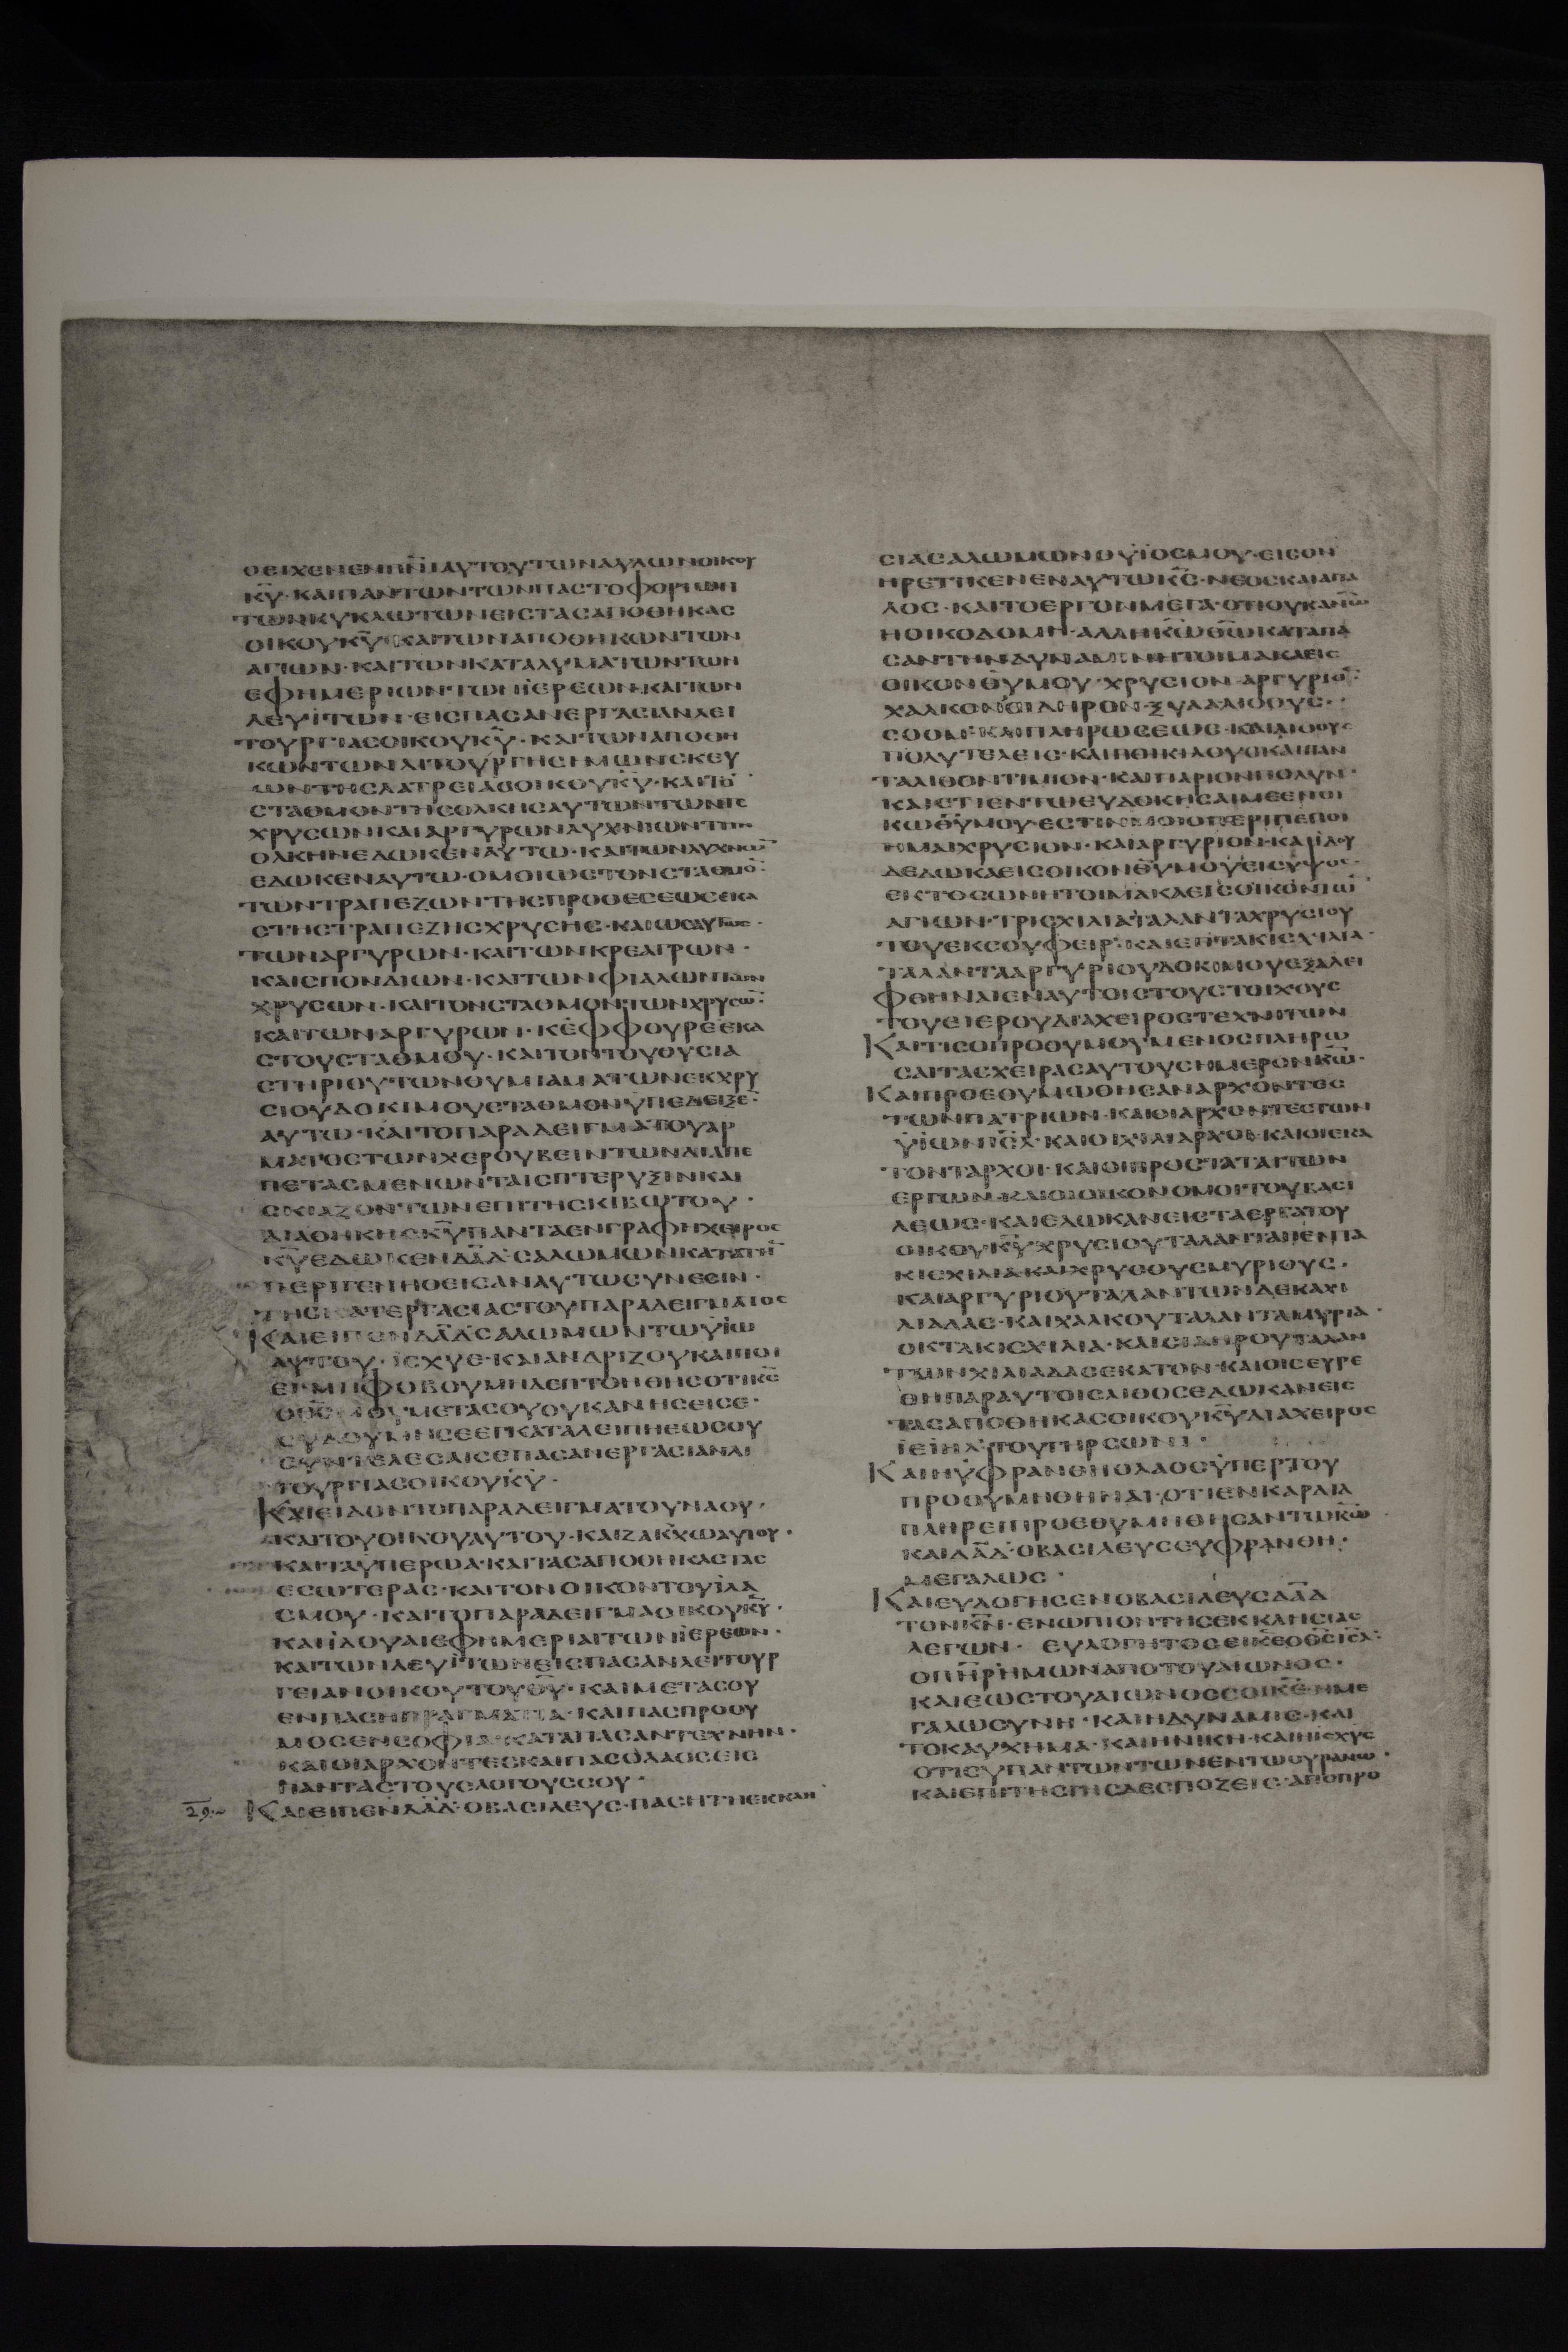 ΟΕΙΧΕΝΕΝΠΝΙΑΥΤΟΥΤΩΝΑΥΛΩΝΟΙΚΟΥ
ΚΥ·ΚΑΙΠΑΝΤΩΝΤΩΝΠΑΣΤΟΦΟΡΙΩΝ
ΤΩΝΚΥΚΛΩΤΩΝΕΙΣΤΑΣΑΠΟΘΗΚΑΣ
ΟΙΚΟΥΚΥ·ΚΑΙΤΩΝΑΠΟΘΗΚΩΝΤΩΝ
ΑΓΙΩΝ·ΚΑΙΤΩΝΚΑΤΑΛΥΜΑΤΩΝΤΩΝ
ΕΦΗΜΕΡΙΩΝΤΩΝΪΕΡΕΩΝ·ΚΑΙΤΩΝ
ΛΕΥΪΤΩΝ·ΕΙΣΠΑΣΑΝΕΡΓΑΣΙΑΝΛΕΙ
ΤΟΥΡΓΙΑΣΟΙΚΟΥΚΥ·ΚΑΙΤΩΝΑΠΟΘΗ
ΚΩΝΤΩΝΛΙΤΟΥΡΓΗΣΙΜΩΝΣΚΕΥ
ΩΝΤΗΣΛΑΤΡΕΙΑΣΟΙΚΟΥΚΥ·ΚΑΙΤΟ
ΣΤΑΘΜΟΝΤΗΣΟΛΚΗΣΑΥΤΩΝΤΩΝΤΕ
ΧΡΥΣΩΝΚΑΙΑΡΓΥΡΩΝΛΥΧΝΙΩΝΤΗΝ
ΟΛΚΗΝΕΔΩΚΕΝΑΥΤΩ·ΚΑΙΤΩΝΛΥΧΝΩ
ΕΔΩΚΕΝΑΥΤΩ·ΟΜΟΙΩΣΤΟΝΣΤΑΘΜΟ·
ΤΩΝΤΡΑΠΕΖΩΝΤΗΣΠΡΟΘΕΣΕΩΣΕΚΑ
ΣΤΗΣΤΡΑΠΕΖΗΣΧΡΥΣΗΣ·ΚΑΙΩΣΑΥΤΩΣ·
ΤΩΝΑΡΓΥΡΩΝ·ΚΑΙΤΩΝΚΡΕΑΓΡΩΝ·
ΚΑΙΣΠΟΝΔΙΩΝ·ΚΑΙΤΩΝΦΙΑΛΩΝΤΩΝ
ΧΡΥΣΩΝ·ΚΑΙΤΟΝΣΤΑΘΜΟΝΤΩΝΧΡΥΣΩ·
ΚΑΙΤΩΝΑΡΓΥΡΩΝ·ΚΕΦΦΟΥΡΕΕΚΑ
ΣΤΟΥΣΤΑΘΜΟΥ·ΚΑΙΤΟΝΤΟΥΘΥΣΙΑ
ΣΤΗΡΙΟΥΤΩΝΘΥΜΙΑΜΑΤΩΝΕΚΧΡΥ
ΣΙΟΥΔΟΚΙΜΟΥΣΤΑΘΜΟΝΥΠΕΔΕΙΞΕ·
ΑΥΤΩ·ΚΑΙΤΟΠΑΡΑΔΕΙΓΜΑΤΟΥΑΡ
ΜΑΤΟΣΤΩΝΧΕΡΟΥΒΕΙΝΤΩΝΔΙΑΠΕ
ΠΕΤΑΣΜΕΝΩΝΤΑΙΣΠΤΕΡΥΞΙΝΚΑΙ
ΣΚΙΑΖΟΝΤΩΝΕΠΙΤΗΣΚΙΒΩΤΟΥ·
ΔΙΑΘΗΚΗΣΚΥΠΑΝΤΑΕΝΓΡΑΦΗΧΕΙΡΟΣ
ΚΥΕΔΩΚΕΝΔΑΔ·ΣΑΛΩΜΩΝΚΑΤΑΤΗ
ΠΕΡΙΓΕΝΗΘΕΙΣΑΝΑΥΤΩΣΥΝΕΣΙΝ·
ΤΗΣΚΑΤΕΡΓΑΣΙΑΣΤΟΥΠΑΡΑΔΕΙΓΜΑΤΟΣ
ΚΑΙΕΙΠΕΝΔΑΔΣΑΛΩΜΩΝΤΩΥΪΩ
ΑΥΤΟΥ·ΪΣΧΥΕ·ΚΑΙΑΝΔΡΙΖΟΥΚΑΙΠΟΙ
ΕΙ·ΜΗΦΟΒΟΥΜΗΔΕΠΤΟΗΘΗΣΟΤΙΚΣ
ΟΘΣΜΟΥΜΕΤΑΣΟΥΟΥΚΑΝΗΣΕΙΣΕ·
ΟΥΔΟΥΜΗΣΕΕΓΚΑΤΑΛΕΙΠΗΕΩΣΟΥ
ΣΥΝΤΕΛΕΣΑΙΣΕΠΑΣΑΝΕΡΓΑΣΙΑΝΛΙ
ΤΟΥΡΓΙΑΣΟΙΚΟΥΚΥ·
ΚΑΙΕΙΔΟΝΤΟΠΑΡΑΔΕΙΓΜΑΤΟΥΝΑΟΥ·
ΚΑΙΤΟΥΟΙΚΟΥΑΥΤΟΥ·ΚΑΙΖΑΚΧΩΑΥΤΟΥ·
ΚΑΙΤΑΥΠΕΡΩΑ·ΚΑΙΤΑΣΑΠΟΘΗΚΑΣΤΑΣ
ΕΣΩΤΕΡΑΣ·ΚΑΙΤΟΝΟΙΚΟΝΤΟΥΪΛΑ
ΣΜΟΥ·ΚΑΙΤΟΠΑΡΑΔΕΙΓΜΑΟΙΚΟΥΚΥ·
ΚΑΙΪΔΟΥΑΙΕΦΗΜΕΡΙΑΙΤΩΝΪΕΡΕΩΝ·
ΚΑΙΤΩΝΛΕΥΪΤΩΝΕΙΣΠΑΣΑΝΛΕΙΤΟΥΡ
ΓΕΙΑΝΟΙΚΟΥΤΟΥΘΥ·ΚΑΙΜΕΤΑΣΟΥ
ΕΝΠΑΣΗΠΡΑΓΜΑΤΙΑ·ΚΑΙΠΑΣΠΡΟΘΥ
ΜΟΣΕΝΣΟΦΙΑ·ΚΑΤΑΠΑΣΑΝΤΕΧΝΗΝ·
ΚΑΙΟΙΑΡΧΟΝΤΕΣΚΑΙΠΑΣΟΛΑΟΣΕΙΣ
ΠΑΝΤΑΣΤΟΥΣΛΟΓΟΥΣΣΟΥ·
29 ΚΑΙΕΙΠΕΝΔΑΔ·ΟΒΑΣΙΛΕΥΣ·ΠΑΣΗΤΗΕΚΚΛΗ
ΣΙΑΣΑΛΩΜΩΝΟΥΪΟΣΜΟΥ·ΕΙΣΟΝ
ΗΡΕΤΙΚΕΝΕΝΑΥΤΩΚΣ·ΝΕΟΣΚΑΙΑΠΑ
ΛΟΣ·ΚΑΙΤΟΕΡΓΟΝΜΕΓΑ·ΟΤΙΟΥΚΑΝΩ
ΗΟΙΚΟΔΟΜΗ·ΑΛΛΗΚΩΘΩΚΑΤΑΠΑ
ΣΑΝΤΗΝΔΥΝΑΜΙΝΗΤΟΙΜΑΚΑΕΙΣ
ΟΙΚΟΝΘΥΜΟΥ·ΧΡΥΣΙΟΝ·ΑΡΓΥΡΙΟ·
ΧΑΛΚΟΝΣΙΔΗΡΟΝ·ΞΥΛΑΛΙΘΟΥΣ·
ΣΟΟΜΚΑΙΠΛΗΡΩΣΕΩΣ·ΚΑΙΛΙΘΟΥΣ
ΠΟΛΥΤΕΛΕΙΣ·ΚΑΙΠΟΙΚΙΛΟΥΣΚΑΙΠΑΝ
ΤΑΛΙΘΟΝΤΙΜΙΟΝ·ΚΑΙΠΑΡΙΟΝΠΟΛΥΝ·
ΚΑΙΕΤΙΕΝΤΩΕΥΔΟΚΗΣΑΙΜΕΕΝΟΙ
ΚΩΘΥΜΟΥ·ΕΣΤΙΝΜΟΙΟΠΕΡΙΠΕΠΟΙ
ΗΜΑΙΧΡΥΣΙΟΝ·ΚΑΙΑΡΓΥΡΙΟΝ·ΚΑΙΪΔΟΥ
ΔΕΔΩΚΑΕΙΣΟΙΚΟΝΘΥΜΟΥΕΙΣΥΨΟΣ·
ΕΚΤΟΣΩΝΗΤΟΙΜΑΚΑΕΙΣΟΙΚΟΝΤΩ
ΑΓΙΩΝ·ΤΡΙΣΧΙΛΙΑΤΑΛΑΝΤΑΧΡΥΣΙΟΥ
ΤΟΥΕΚΣΟΥΦΕΙΡ·ΚΑΙΕΠΤΑΚΙΣΧΙΛΙΑ·
ΤΑΛΑΝΤΑΑΡΓΥΡΙΟΥΔΟΚΙΜΟΥΕΞΑΛΕΙ
ΦΘΗΝΑΙΕΝΑΥΤΟΙΣΤΟΥΣΤΟΙΧΟΥΣ
ΤΟΥΕΙΕΡΟΥΔΙΑΧΕΙΡΟΣΤΕΧΝΙΤΩΝ
ΚΑΙΤΙΣΟΠΡΟΘΥΜΟΥΜΕΝΟΣΠΛΗΡΩ
ΣΑΙΤΑΣΧΕΙΡΑΣΑΥΤΟΥΣΗΜΕΡΟΝΚΩ·
ΚΑΙΠΡΟΕΘΥΜΩΘΗΣΑΝΑΡΧΟΝΤΕΣ
ΤΩΝΠΑΤΡΙΩΝ·ΚΑΙΟΙΑΡΧΟΝΤΕΣΤΩΝ
ΥΪΩΝΙΣΛ·ΚΑΙΟΙΧΙΛΙΑΡΧΟΙ·ΚΑΙΟΙΕΚΑ
ΤΟΝΤΑΡΧΟΙ·ΚΑΙΟΙΠΡΟΣΤΑΤΑΙΤΩΝ
ΕΡΓΩΝ·ΚΑΙΟΙΟΙΚΟΝΟΜΟΙΤΟΥΒΑΣΙ
ΛΕΩΣ·ΚΑΙΕΔΩΚΑΝΕΙΣΤΑΕΡΓΑΤΟΥ
ΟΙΚΟΥΚΥΧΡΥΣΙΟΥΤΑΛΑΝΤΑΠΕΝΤΑ
ΚΙΣΧΙΛΙΑΚΑΙΧΡΥΣΟΥΣΜΥΡΙΟΥΣ·
ΚΑΙΑΡΓΥΡΙΟΥΤΑΛΑΝΤΩΝΔΕΚΑΧΙ
ΛΙΑΔΑΣ·ΚΑΙΧΑΛΚΟΥΤΑΛΑΝΤΑΜΥΡΙΑ·
ΟΚΤΑΚΙΣΧΙΛΙΑ·ΚΑΙΣΙΔΗΡΟΥΤΑΛΑΝ
ΤΩΝΧΙΛΙΑΔΑΣΕΚΑΤΟΝ·ΚΑΙΟΙΣΕΥΡΕ
ΘΗΠΑΡΑΥΤΟΙΣΛΙΘΟΣΕΔΩΚΑΝΕΙΣ
ΤΑΣΑΠΟΘΗΚΑΣΟΙΚΟΥΚΥΔΙΑΧΕΙΡΟΣ
ΪΕΙΗΛΤΟΥΓΗΡΣΩΝΙ·
ΚΑΙΗΥΦΡΑΝΘΗΟΛΑΟΣΥΠΕΡΤΟΥ
ΠΡΟΘΥΜΗΘΗΝΑΙ·ΟΤΙΕΝΚΑΡΔΙΑ
ΠΛΗΡΕΙΠΡΟΕΘΥΜΗΘΗΣΑΝΤΩΚΩ
ΚΑΙΔΑΔ·ΟΒΑΣΙΛΕΥΣΕΥΦΡΑΝΘΗ·
ΜΕΓΑΛΩΣ·
ΚΑΙΕΥΛΟΓΗΣΕΝΟΒΑΣΙΛΕΥΣΔΑΔ
ΤΟΝΚΝ·ΕΝΩΠΙΟΝΤΗΣΕΚΚΛΗΣΙΑΣ
ΛΕΓΩΝ· ΕΥΛΟΓΗΤΟΣΕΙΚΕΟΘΣΙΣΛ·
ΟΠΗΡΗΜΩΝΑΠΟΤΟΥΑΙΩΝΟΣ·
ΚΑΙΕΩΣΤΟΥΑΙΩΝΟΣΣΟΙΚΕ·ΗΜΕ
ΓΑΛΩΣΥΝΗ·ΚΑΙΗΔΥΝΑΜΙΣ·ΚΑΙ
ΤΟΚΑΥΧΗΜΑ·ΚΑΙΗΝΙΚΗ·ΚΑΙΗΙΣΧΥΣ
ΟΤΙΣΥΠΑΝΤΩΝΤΩΝΕΝΤΩΟΥΡΑΝΩ·
ΚΑΙΕΠΙΤΗΣΓΗΣΔΕΣΠΟΖΕΙΣ·ΑΠΟΠΡΟ